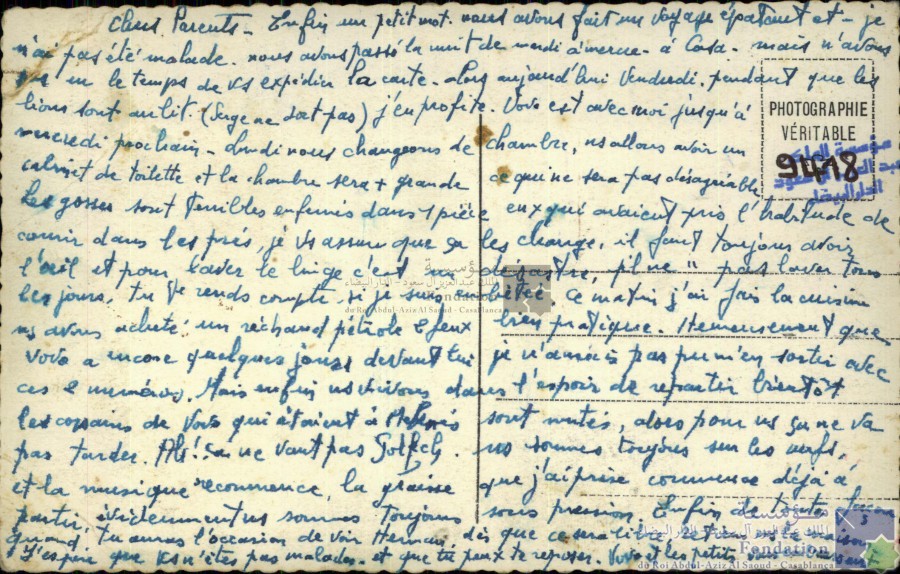 Chers Parents - Enfin un petit mot. nous avons fait un voyage épatant et - je
n'ai pas été malade. nous avons passé la nuit de mardi à mercre - à Casa - mais n'avons
pas eu le temps de vs expédier la carte - Alors aujourd'hui Vendredi, pendant que les
lions sont au lit. (Serge ne dort pas) j'en profite. Vovo est avec moi jusqu'à
mercredi prochain - Lundi nous changeons de chambre, ns allons avoir un
cabinet de toilette et la chambre sera + grande ce qui ne sera pas désagréable
Les gosses sont terribles enfermés dans 1 pièce eux qui avaient pris l'habitude de
courir dans les prés, je vs assure que ça les change, il faut toujours avoir
l'œil et pour laver le linge c'est un désastre, pil ne " pas laver tous
les jours. tu te rends compte si je suis embêtée Ce matin j'ai fais la cuisine
ns avons acheté un réchaud pétrole 2 feux bien pratique. Heureusement que
Vovo a encore quelques jours devant lui je n'aurais pas pu m'en sortir avec
ces 2 numéros. Mais enfin ns vivons dans l'espoir de repartir bientôt
les copains de Vovo qui étaient à Meknès sont mutés, alors pour ns ça ne va
pas tarder. Ah! ça ne vaut pas Golfech. ns sommes toujours sur les nerfs,
et la musique recommence, la graisse que j'ai prise commence déjà à
partir, évidemment ns sommes toujours sous pression. Enfin de toutes façon
quand tu auras l'occasion de voir Hermani, dès que ce sera libre
J'espère que vs n'êtes pas malades. et que tu peux te reposer. Vovo et les petits vous
PHOTOGRAPHIE
VÉRITABLE
9418
مؤسسة الملك
عبد العزيز آل سعود
الدار البيضاء
مؤسسة
الملك عبد العزيز آل سعود - الدار البيضاء
Fondation
du Roi Abdul-Aziz Al Saoud - Casablanca
مؤسسة
الملك عبد العزيز آل سعود - الدار البيضاء
Fondation
du Roi Abdul-Aziz Al Saoud - Casablanca